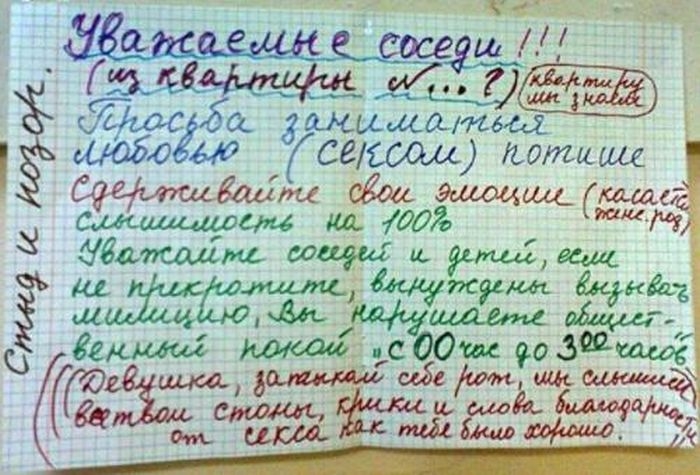 Уважаемые соседи!!!
(из квартиры №...?) (квартиру
мы знаем)
Просьба заниматься
любовью (СЕКСОМ) потише
Сдерживайте свои эмоции (касается
женс. род)
слышимость на 100%
Уважайте соседей и детей, если
не прекратите, вынуждены вызывать
милицию, Вы нарушаете общест-
венный покой „с 00 час до 3 00 часов"
((Девушка, затыкай себе рот, мы слышим
все твои стоны, крики и слова благодарности
от секса как тебе было хорошо.))
Стыд и позор.